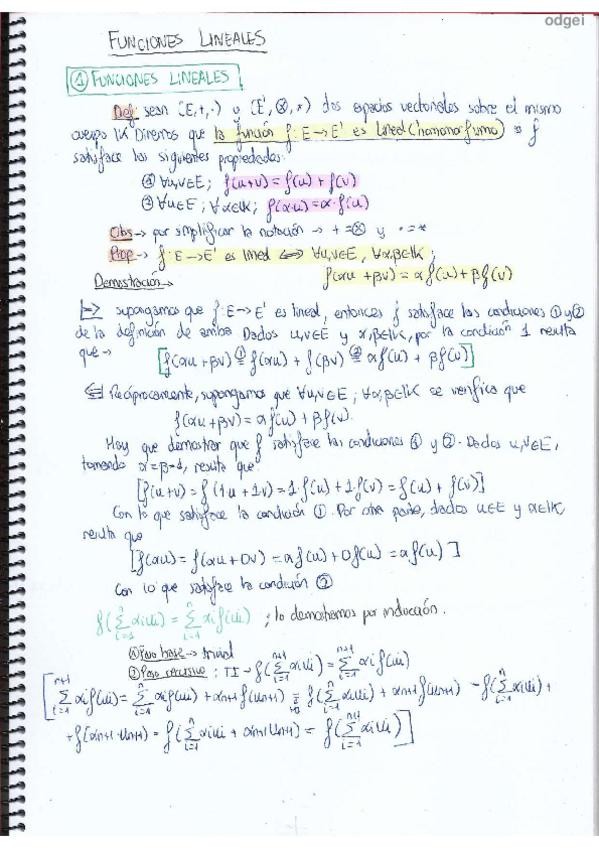 odgei
FUNCIONES LINEALES
① FUNCIONES LINEALES
Def: sean (E,+,·) y (E',⊗,*) dos espacios vectoriales sobre el mismo
cuerpo IK. Diremos que la función f: E→E' es lineal (homomorfismo) si f
satisface las siguientes propiedades:
① ∀u,v∈E; f(u+v) = f(u) + f(v)
② ∀u∈E; ∀α∈IK; f(α·u) = α·f(u)
Obs → por simplificar la notación → + = ⊗ y · = *
Prop → f: E→E' es lineal ⟺ ∀u,v∈E, ∀α,β∈IK;
f(αu + βv) = αf(u) + βf(v)
Demostración →
⇒ supongamos que f: E→E' es lineal, entonces f satisface las condiciones ① y ②
de la definición de arriba. Dados u,v∈E y α,β∈IK, por la condición 1 resulta
que → [f(αu + βv) ①= f(αu) + f(βv) ②= αf(u) + βf(v)]
⇐ Recíprocamente, supongamos que ∀u,v∈E; ∀α,β∈IK se verifica que
f(αu + βv) = αf(u) + βf(v).
Hay que demostrar que f satisface las condiciones ① y ②. Dados u,v∈E,
tomando α=β=1, resulta que:
[f(u+v) = f(1u + 1v) = 1·f(u) + 1·f(v) = f(u) + f(v)]
Con lo que satisface la condición ①. Por otra parte, dados u∈E y α∈IK,
resulta que
[f(αu) = f(αu + 0v) = αf(u) + 0f(u) = αf(u)]
Con lo que satisface la condición ②
f(∑ⁿᵢ₌₁ αiui) = ∑ⁿᵢ₌₁ αi f(ui) ; lo demostramos por inducción.
① Paso base → trivial
② Paso recursivo: TI → f(∑ⁿ⁺¹ᵢ₌₁ αiui) = ∑ⁿ⁺¹ᵢ₌₁ αi f(ui)
[∑ⁿ⁺¹ᵢ₌₁ αi f(ui) = ∑ⁿᵢ₌₁ αi f(ui) + αn+1 f(un+1) = f(∑ⁿᵢ₌₁ αiui) + αn+1 f(un+1) = f(∑ⁿᵢ₌₁ αiui) +
+ f(αn+1·un+1) = f(∑ⁿᵢ₌₁ αiui + αn+1un+1) = f(∑ⁿ⁺¹ᵢ₌₁ αiui)]